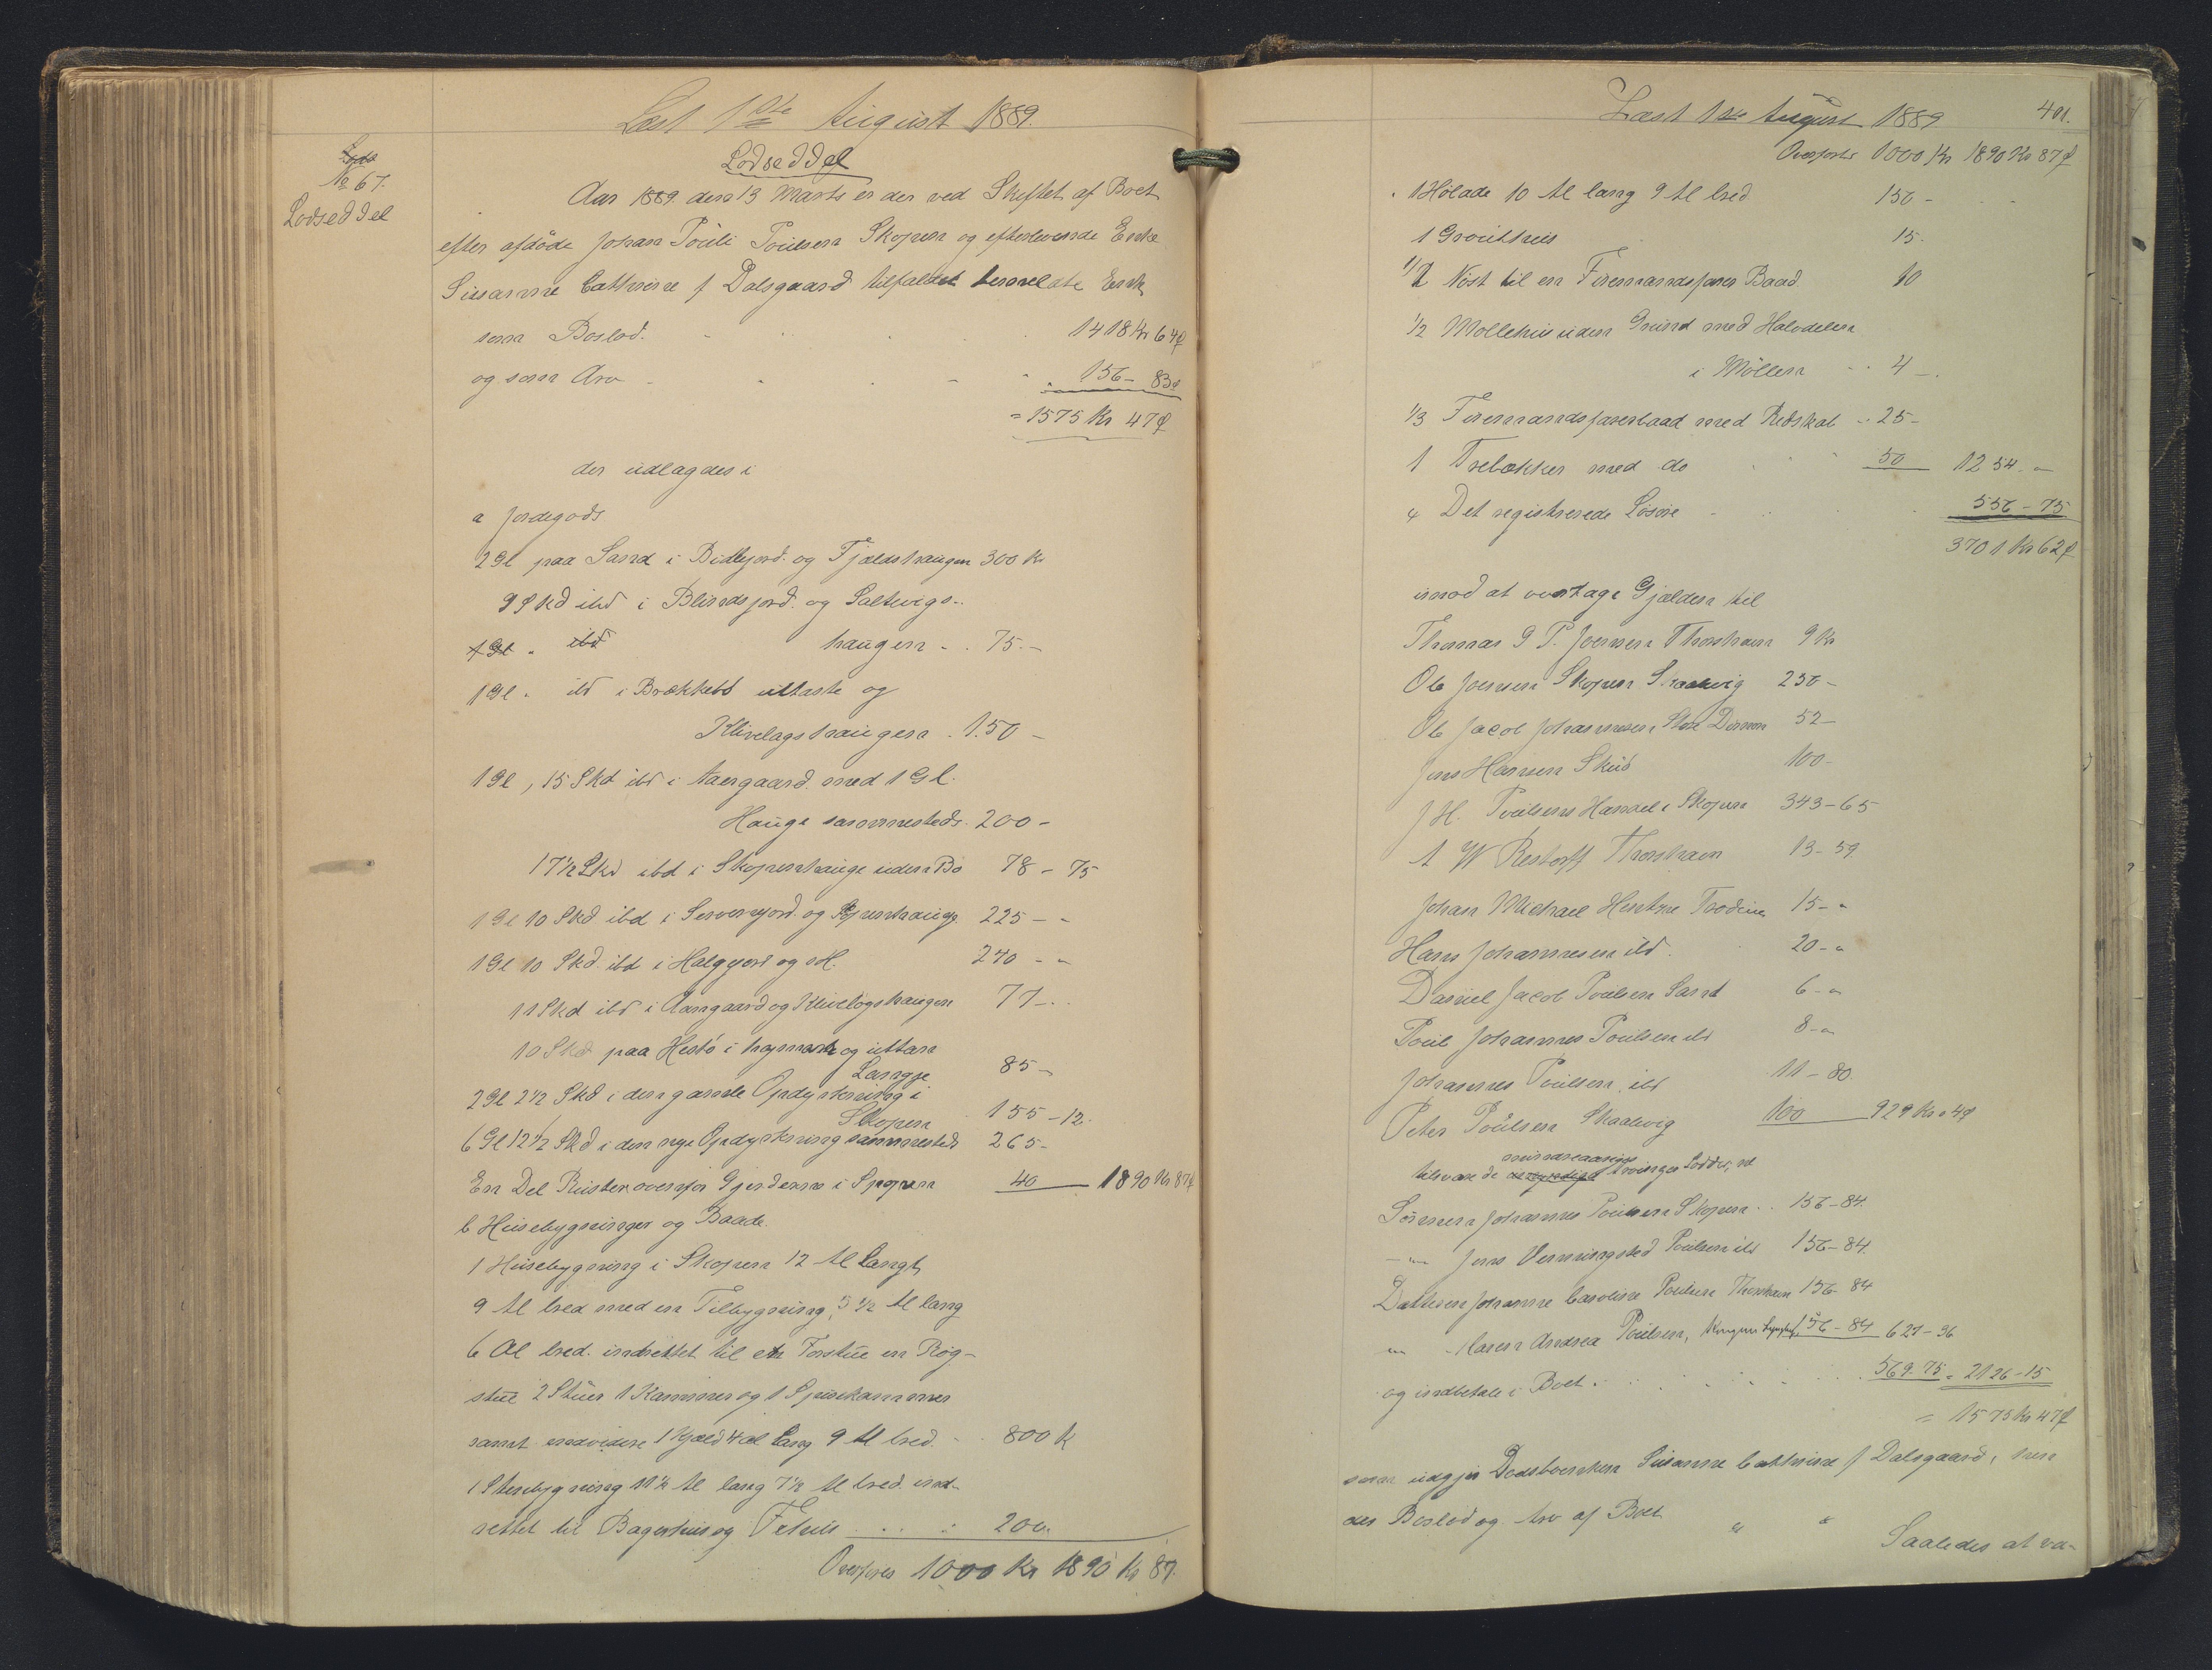 Læst 1ste August 1889.
No 67.
Lodseddel
Lodseddel
Aar 1889 den 13 Marts er der ved Skiftet af Boet
efter afdöde Johan Pouli Poulsen Skopen og efterlevende Enke
Susanne Cathrine f Dalsgaard tilfaldet bemeldte Enke
som Boslod. 1418 Kr 64 ø
og som Arv 156 - 83 ø
= 1575 Kr 47 ø
der udlagdes i
a Jordegods
2 Gl paa Sand i Bidlejord. og Fjaldshaugen 300 Kr
9 Skd ibd i Blindsjord. og Saltvigs-
1 Gl " ibd haugen - 75 -
1 Gl " ibd i Brækkebö uttaste og
Klivelagshaugen - 150 -
1 Gl, 15 Skd ibd i Aaergaard. med 1 Gl.
Hauge sammesteds. 200 -
17½ Skd ibd i Skopenhauge uden Bö 78 - 75
1 Gl 10 Skd ibd i Servenjord. og Skopenhauge 225 - "
1 Gl 10 Skd. ibd i Halgjord og sH. 240 - "
11 Skd ibd i Aaergaard og Klivelagshaugen 77 -
10 Skd paa Hestö i hagmark og uttan
Langgje 85 -
2 Gl 2½ Skd i den gamle Opdyrkning i
Skopen 155 - 12
6 Gl 12½ Skd i den nye Opdyrkning sammesteds 265 -
En Del Röister ovenfor Gjerderne i Skopen 40 1890 Kr 87 ø
b Huusebygninger og Baade.
1 Huusebygning i Skopen 12 Al Langt,
9 Al bred med en Tilbygning, 5½ Al lang
6 Al bred. indrettet til en Forstue en Røg-
stue 2 Stuer 1 Kammer og 1 Spisekammer
samt endvidere 1 Kjæld 4 al lang 9 Al bred. - 800 K
1 Steenbygning 11½ Al lang 7½ Al bred. ind-
rettet til Bagerhus og Fehus 200
Overføres 1000 Kr 1890 Kr 87.
Læst 1ste August 1889 401.
Overførte 1000 Kr 1890 Kr 87 ø
1 Hølade 10 Al lang 9 Al bred 150 -
1 Grouthuus 15.
1/2 Nöst til en Firemandsfarer Baad. 10
1/2 Møllehuus uden Grund med Halvdelen
i Møllen 4 -
1/3 Firemandsfarerbaad med Redskab 25 -
1 Trebækker med do 50 1254 - "
c Det registrerede Løsøre 556 - 75
3701 Kr 62 ø
imod at overtage Gjælden til
Thomas G P. Joensen Thorshavn 9 Kr
Ole Joensen Skopen Skaalevig 250 -
Ole Jacob Johannesen Store Dimon 52 -
Jens Hansen Skuö 100 -
J H. Poulsens Handel i Skopen 343 - 65
A W Restorff Thorshavn 13 - 59
Johan Michael Hentze Troðum 15 - "
Hans Johannesen ibd. 20 - "
Daniel Jacob Poulsen Sand 6 - "
Poul Johannes Poulsen ibd 8 - "
Johannes Poulsen ibd 11 - 80
Peter Poulsen Skaalevig 100 929 Kr " 4 ø
mindreaarige
tilsvare de arvinges Lodder, nl
Sönnen Johannes Poulsen Skopen 156 - 84.
- " - Jens Venningsted Poulsen ibd 156 - 84.
Datteren Johanne Caroline Poulsen Thorshavn 156 - 84
- " - Maren Andrea Poulsen, Kongens Lyngby 156 - 84 627 - 36
og indbetale i Boet 569.75 = 2126 - 15
= 1575 Kr 47 ø
som udgjør Dødsboenken Susanne Cathrine f Dalsgaard, hen-
des Boslod og Arv af Boet
Saaledes at ved-